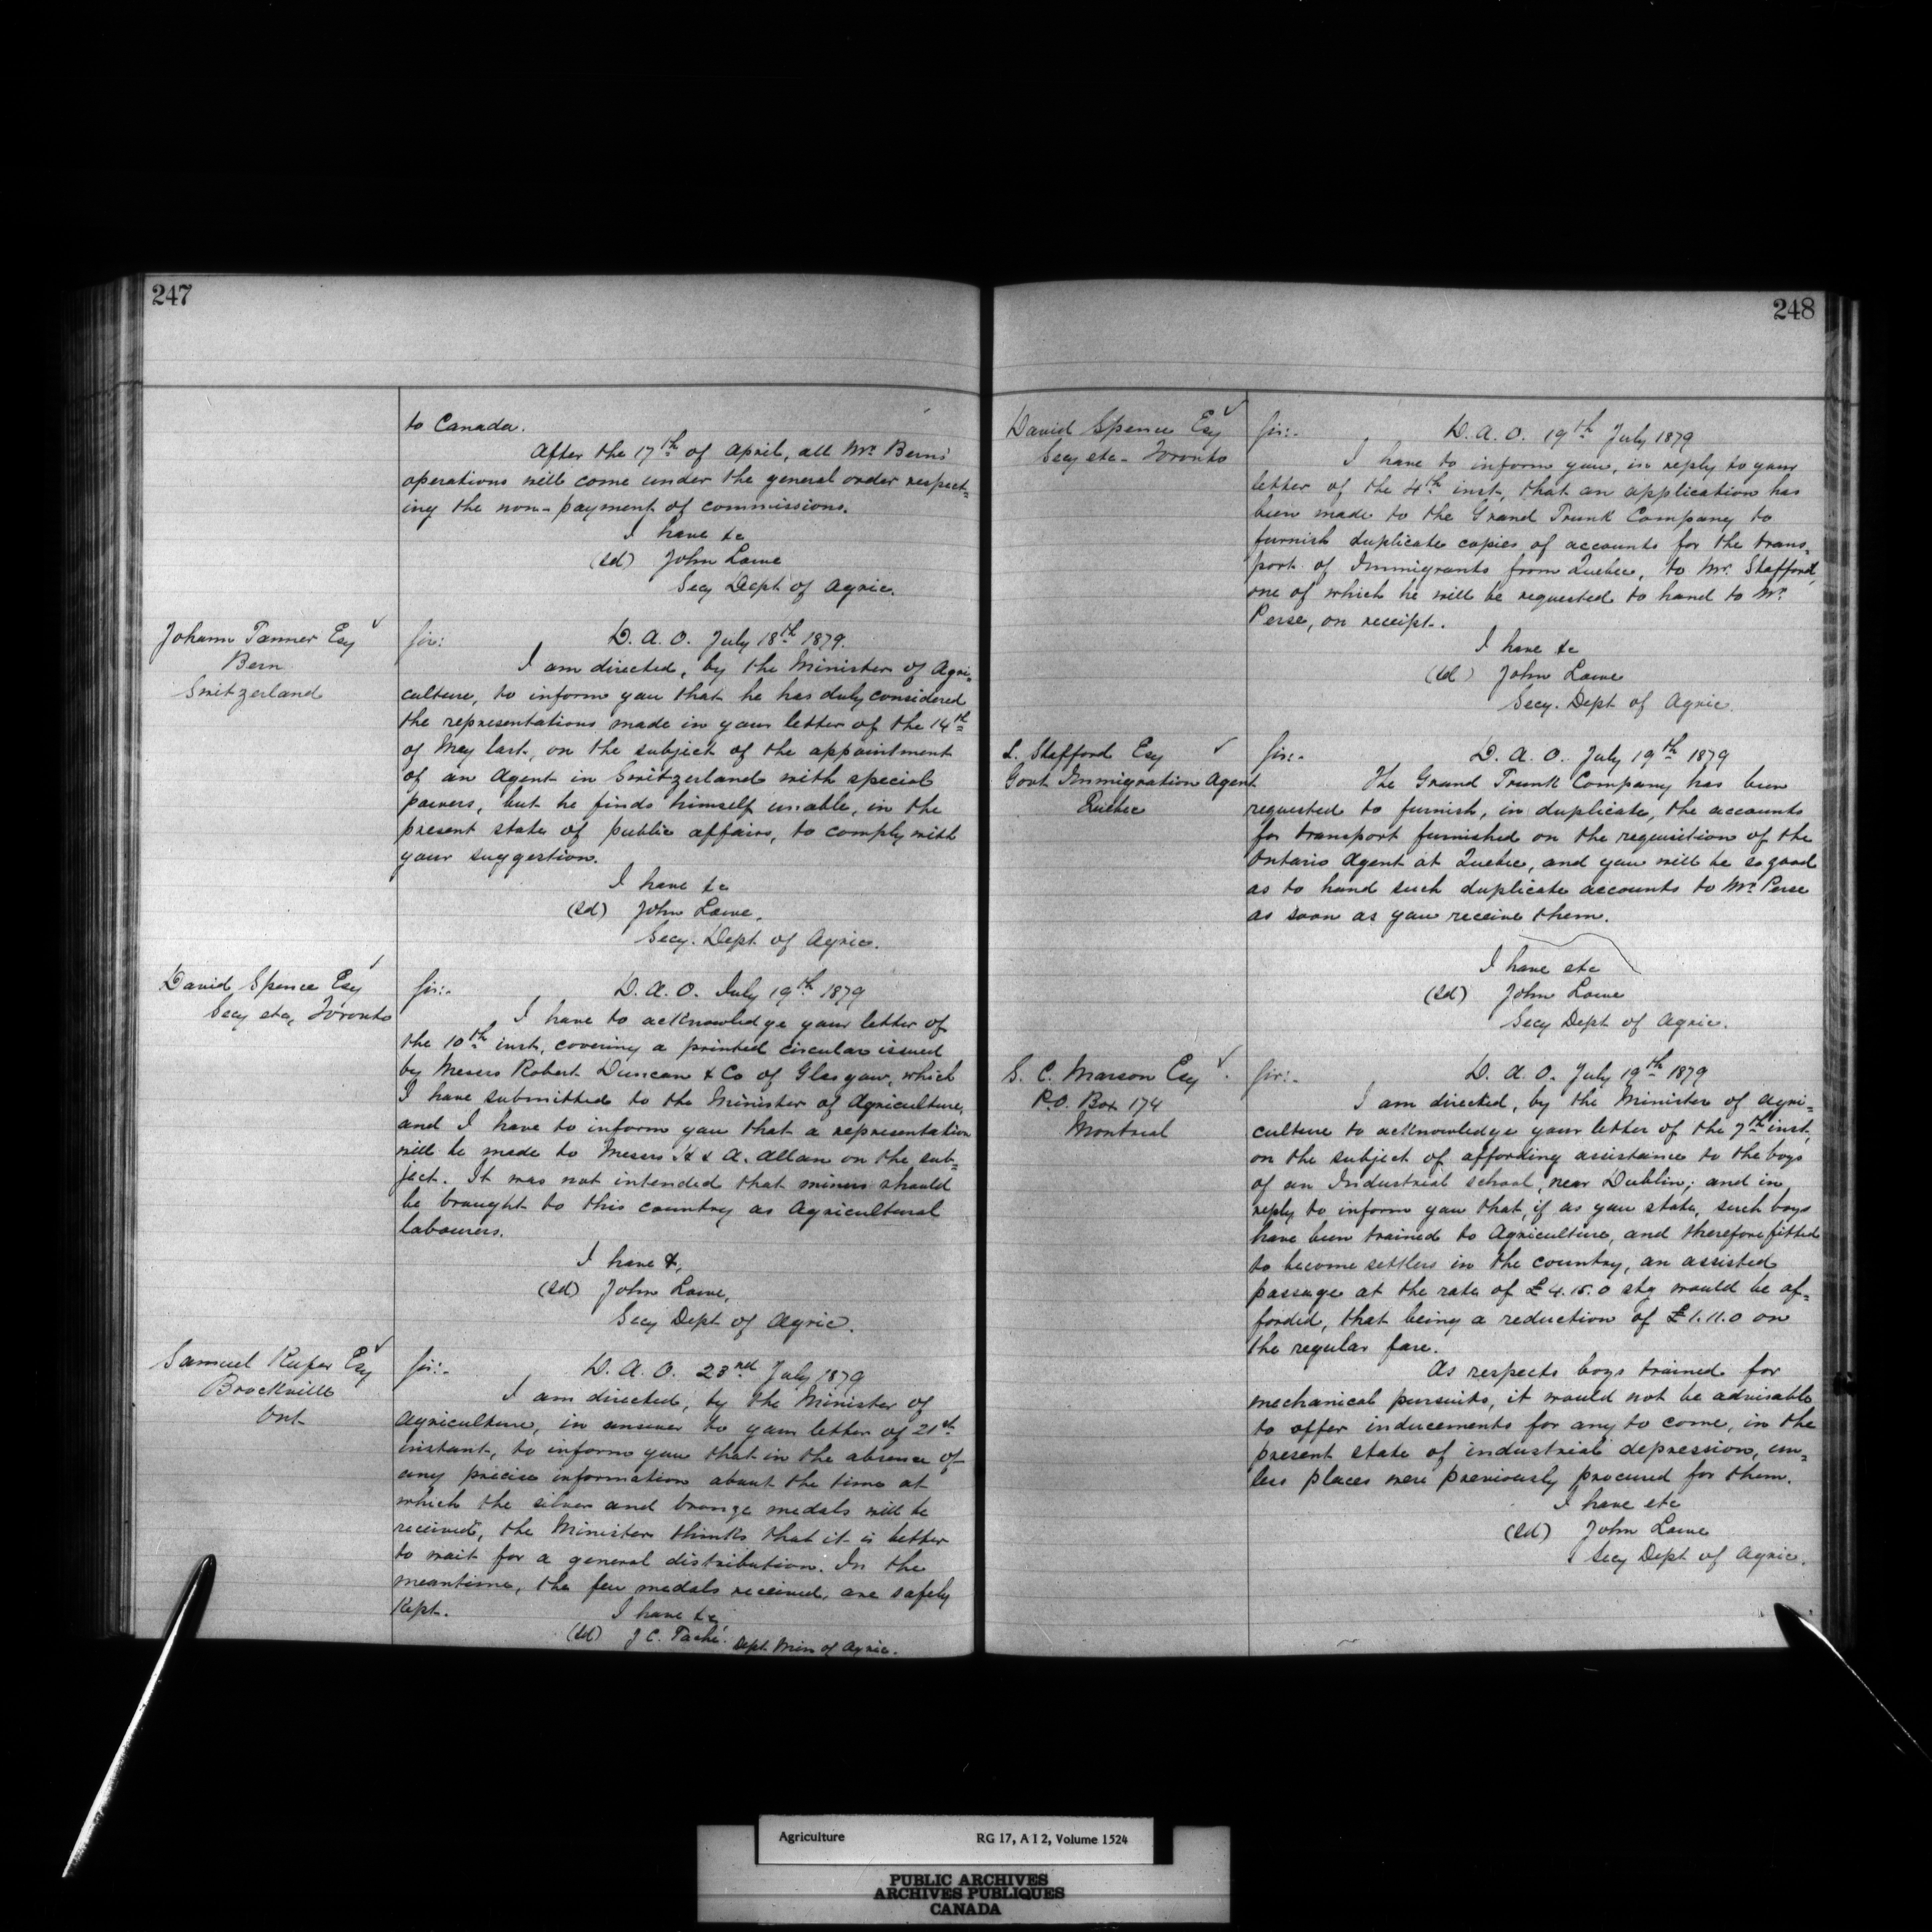 247
to Canada.
After the 17th of April, all Mr. Berns'
operations will come under the general order respect=
ing the non-payment of commissions.
I have &c
(sd) John Lowe
Secy Dept of Agric.
Johann Tanner Esq
Bern
Switzerland
Sir:
D. A. O. July 18th 1879.
I am directed, by the Minister of Agri=
culture, to inform you that he has duly considered
the representations made in your letter of the 14th
of May last, on the subject of the appointment
of an Agent in Switzerland with special
powers, but he finds himself unable, in the
present state of public affairs, to comply with
your suggestion.
I have &c
(sd) John Lowe.
Secy. Dept of Agric.
David Spence Esq
Secy etc, Toronto
Sir:-
D. A. O. July 19th 1879
I have to acknowledge your letter of
the 10th inst, covering a printed circular issued
by Messrs Robert Duncan & Co of Glasgow, which
I have submitted to the Minister of Agriculture,
and I have to inform you that a representation
will be made to Messrs H & A. Allan on the sub=
ject. It was not intended that miners should
be brought to this country as Agricultural
labourers.
I have &,
(sd) John Lowe,
Secy Dept of Agric.
Samuel Esq
Brockville
Ont
Sir:-
D. A. O. 23rd July 1879
I am directed, by the Minister of
Agriculture, in answer to your letter of 21st
instant, to inform you that in the absence of
any precise information about the time at
which the silver and bronze medals will be
received, the Minister thinks that it is better
to wait for a general distribution. In the
meantime, the few medals received, are safely
kept.
I have &c
(sd) J C. Taché. Dept. Min of Agric.
248
David Spence Esq
Secy etc - Toronto
Sir:-
D. A. O. 19th July 1879
I have to inform you, in reply to your
letter of the 4th inst, that an application has
been made to the Grand Trunk Company to
furnish duplicate copies of accounts for the trans=
port of Immigrants from Quebec, to Mr. Stafford,
one of which he will be requested to hand to Mr.
Perse, on receipt.
I have &c
(sd) John Lowe
Secy. Dept of Agric.
L. Stafford Esq
Govt Immigration Agent
Quebec
Sir:-
D. A. O. July 19th 1879
The Grand Trunk Company has been
requested to furnish, in duplicate, the accounts
for transport furnished on the requisition of the
Ontario Agent at Quebec, and you will be so good
as to hand such duplicate accounts to Mr. Perse
as soon as you receive them.
I have etc
(sd) John Lowe
Secy Dept of Agric.
S. C. Marson Esq
P.O. Box 174
Montreal
Sir:-
D. A. O. July 19th 1879
I am directed, by the Minister of Agri=
culture to acknowledge your letter of the 7th inst,
on the subject of affording assistance to the boys
of an Industrial school, near Dublin; and in
reply to inform you that, if as you state, such boys
have been trained to Agriculture, and therefore fitted
to become settlers in the country, an assisted
passage at the rate of £4.15.0 stg would be af=
forded, that being a reduction of £1.11.0 on
the regular fare.
As respects boys trained for
mechanical pursuits, it would not be advisable
to offer inducements for any to come, in the
present state of industrial depression, un=
less places were previously procured for them.
I have etc
(sd) John Lowe
Secy Dept of Agric.
Agriculture RG 17, A I 2, Volume 1524
PUBLIC ARCHIVES
ARCHIVES PUBLIQUES
CANADA